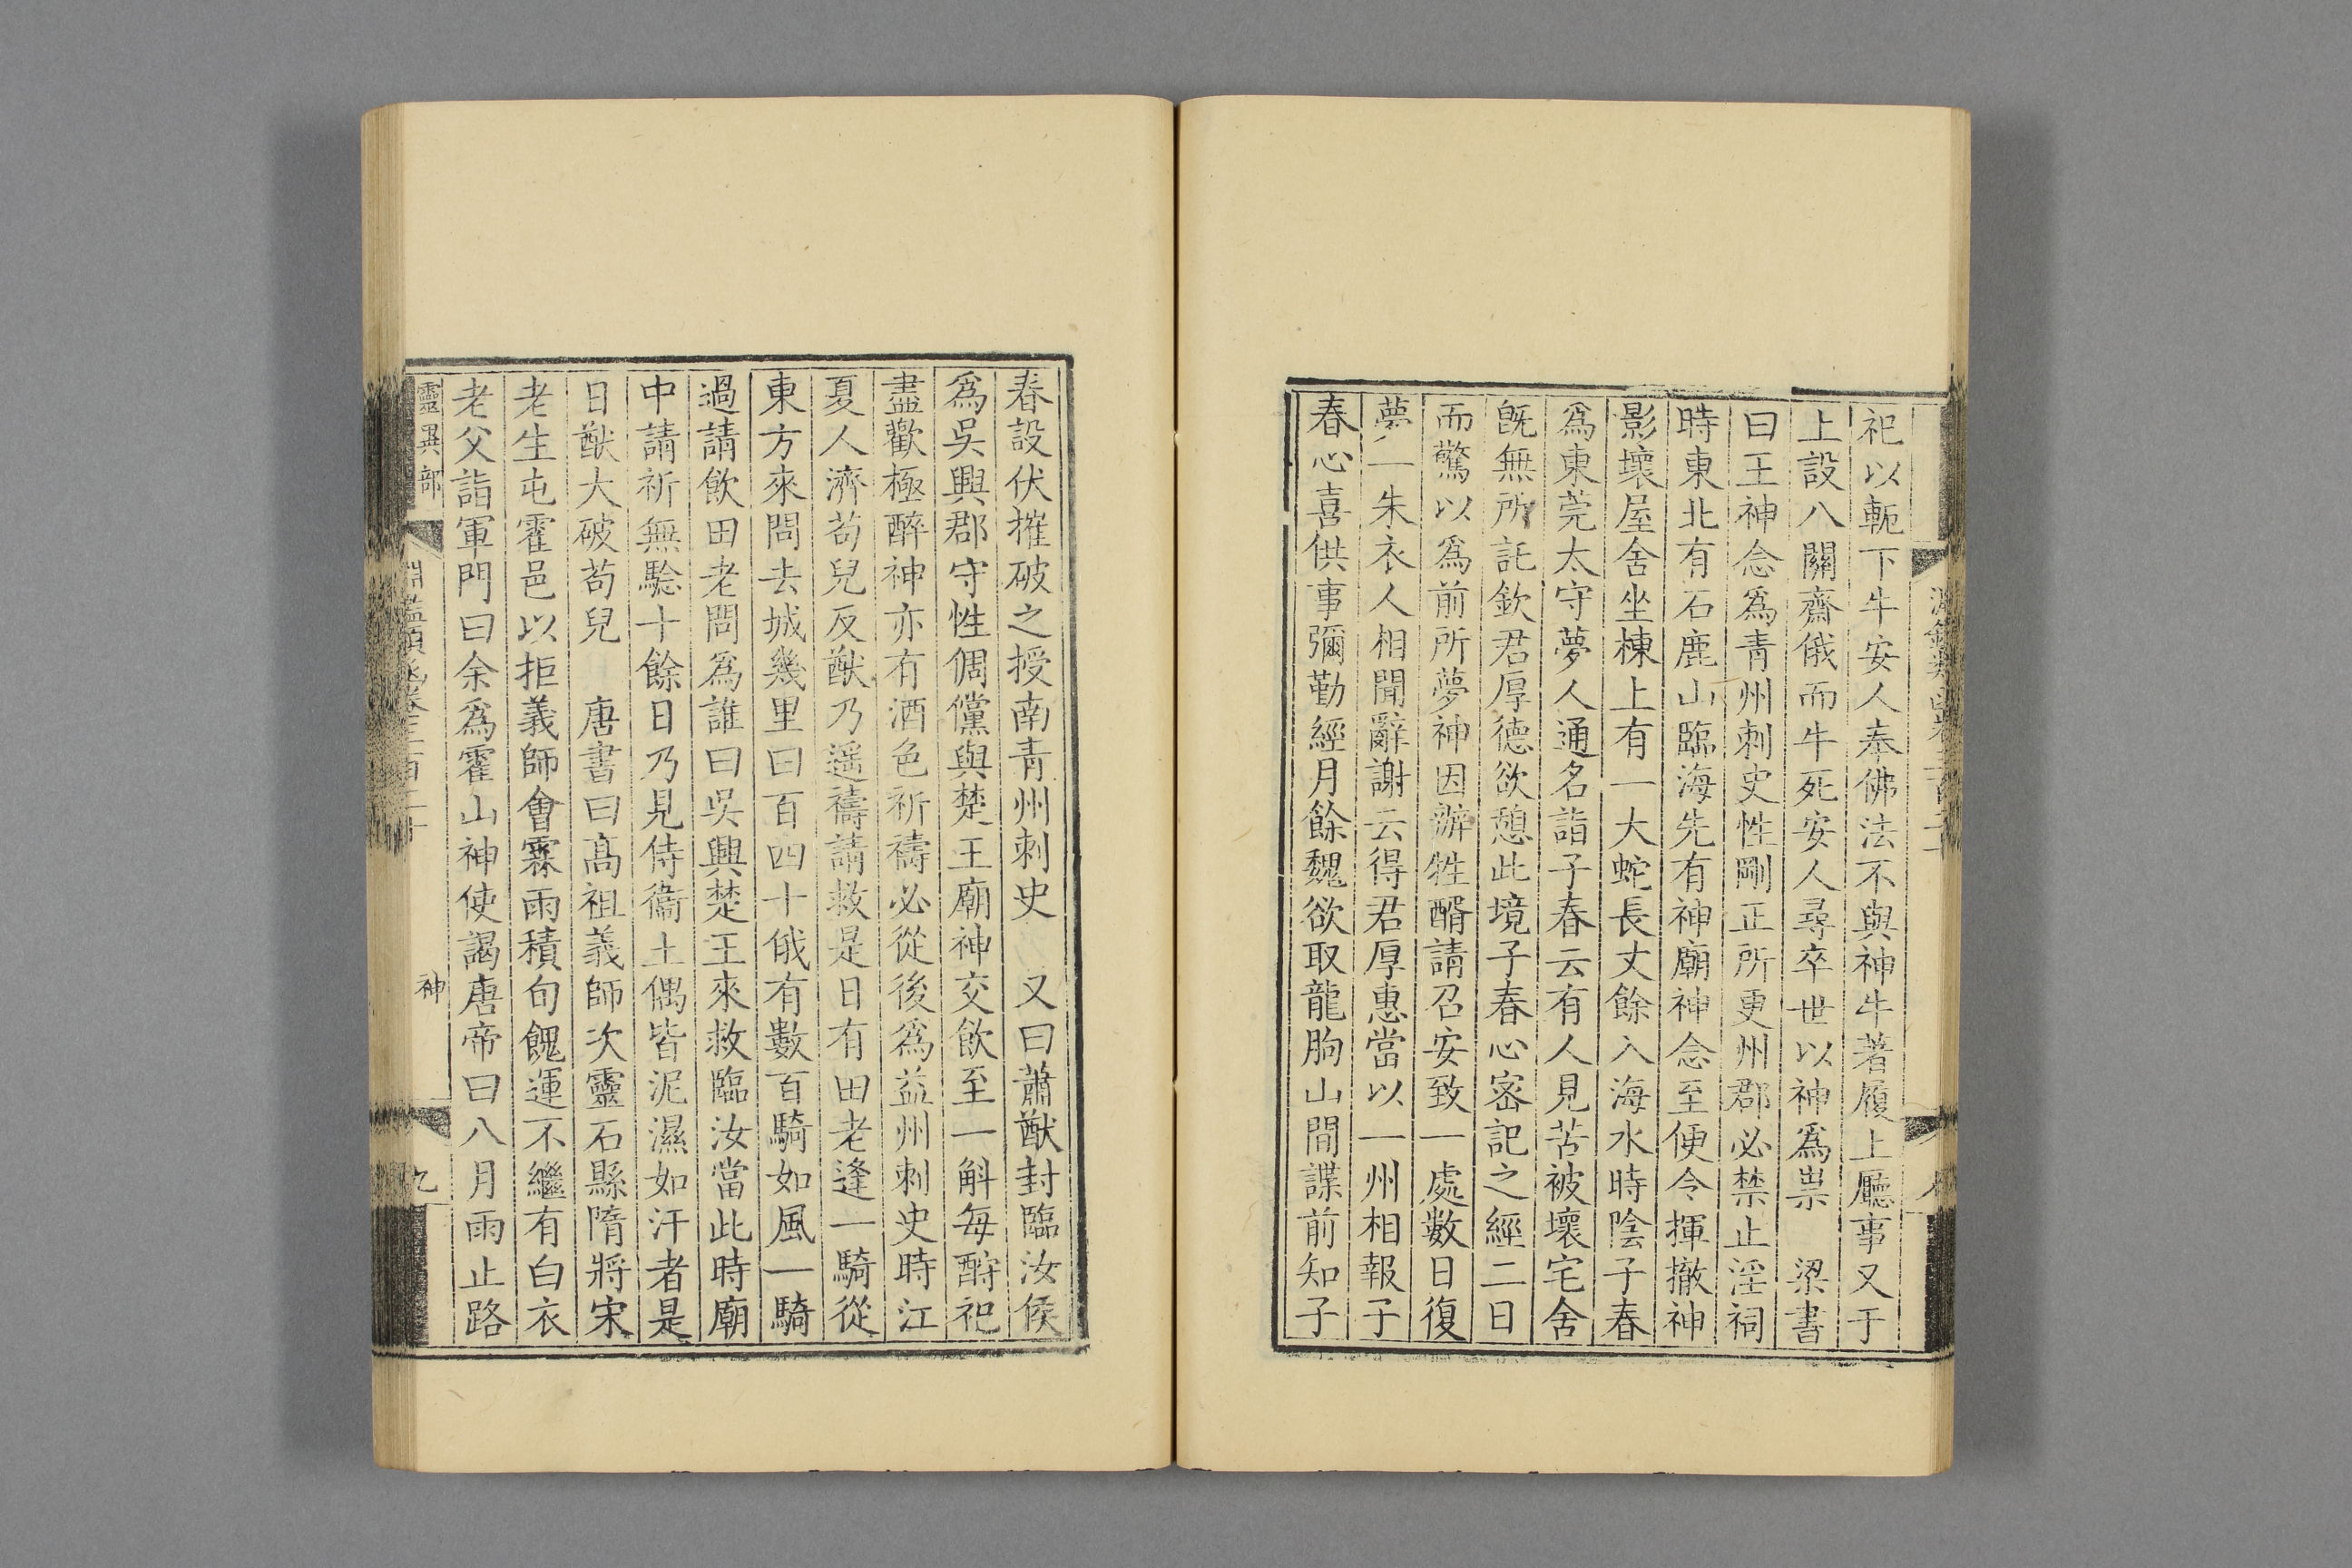 祀以軛下牛安人奉佛法不與神牛著履上廳事又于
上設八關齋俄而牛死安人尋卒世以神爲祟　梁書
曰王神念爲青州刺史性剛正所更州郡必禁止淫祠
時東北有石鹿山臨海先有神廟神念至便令揮撤神
影壞屋舍坐棟上有一大蛇長丈餘入海水時陰子春
爲東莞太守夢人通名詣子春云有人見苦被壞宅舍
旣無所託欽君厚德欲憩此境子春心宻記之經二日
而驚以爲前所夢神因辦牲醑請召安致一處數日復
夢一朱衣人相聞辭謝云得君厚惠當以一州相報子
春心喜供事彌勤經月餘魏欲取龍朐山間諜前知子
春設伏摧破之授南青州刺史　又曰蕭猷封臨汝侯
爲吳興郡守性倜儻與楚王廟神交飲至一斛每酹祀
盡歡極醉神亦有酒色祈禱必從後爲益州刺史時江
夏人濟苟兒反猷乃遥禱請救是日有田老逢一騎從
東方來問去城幾里曰百四十俄有數百騎如風一騎
過請飲田老問爲誰曰吳興楚王來救臨汝當此時廟
中請祈無驗十餘日乃見侍衞土偶皆泥濕如汗者是
日猷大破苟兒　唐書曰高祖義師次靈石縣隋將宋
老生屯霍邑以拒義師會霖雨積旬餽運不繼有白衣
老父詣軍門曰余爲霍山神使謁唐帝曰八月雨止路
靈異部
神
九